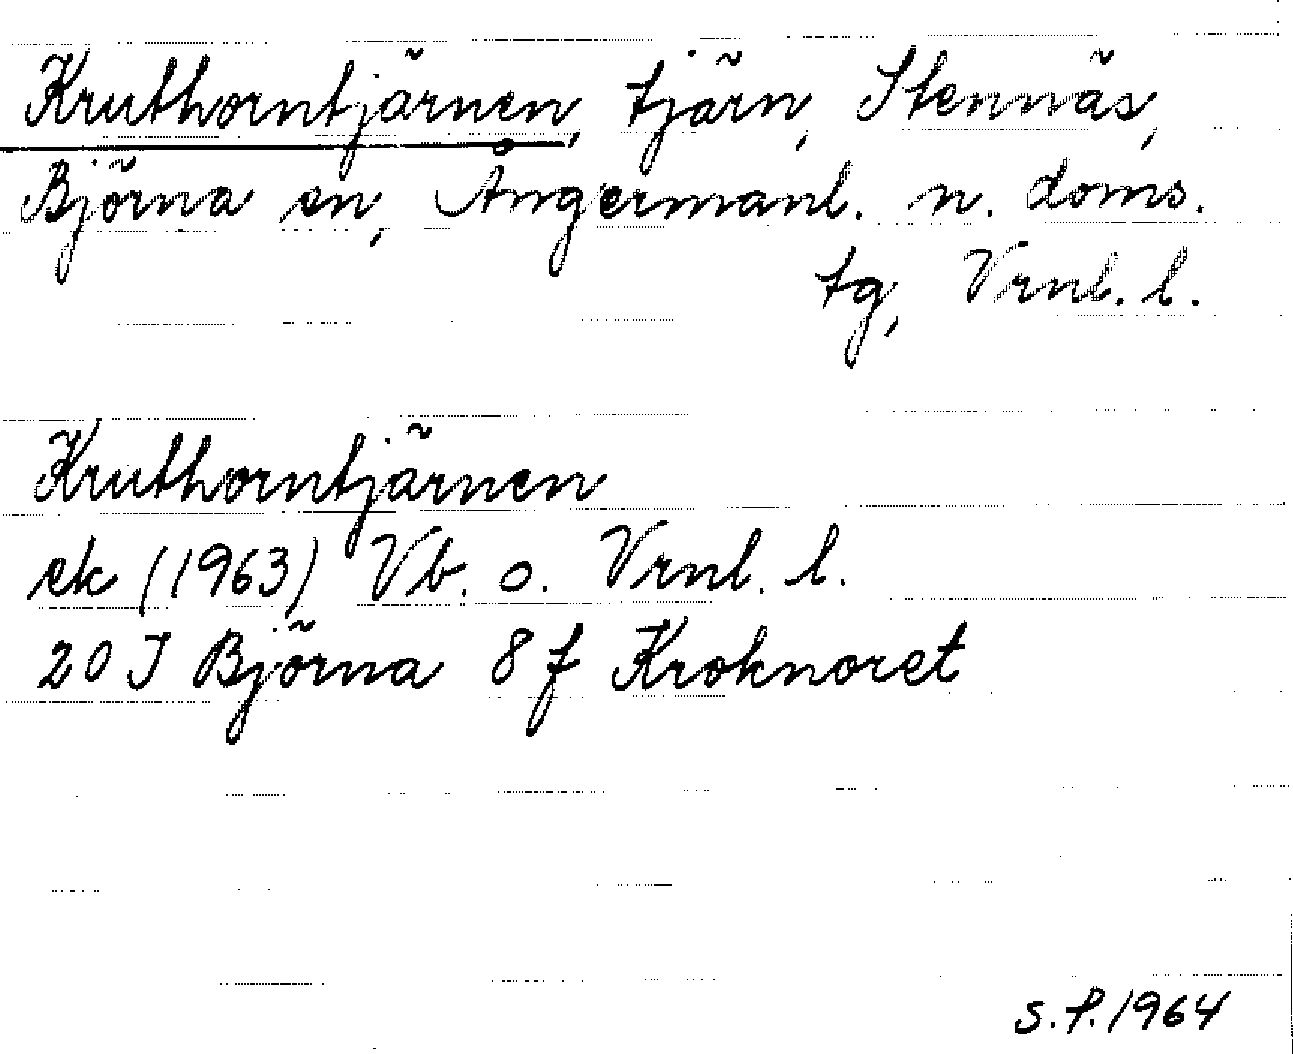 Kruthorntjärnen, tjärn, Stennäs,
Björna sn, Ångermanl. n. doms.
tg, Vrnl. l.
Kruthorntjärnen
ek (1963) Vb. o. Vrnl. l.
20 J Björna 8 f Kroknoret
S.P. 1964